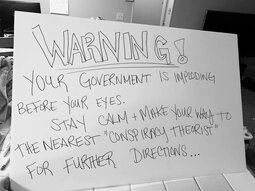 WARNING!
YOUR GOVERNMENT IS IMPLODING
BEFORE YOUR EYES.
STAY CALM + MAKE YOUR WAY TO
THE NEAREST "CONSPIRACY THEORIST"
FOR FURTHER DIRECTIONS...